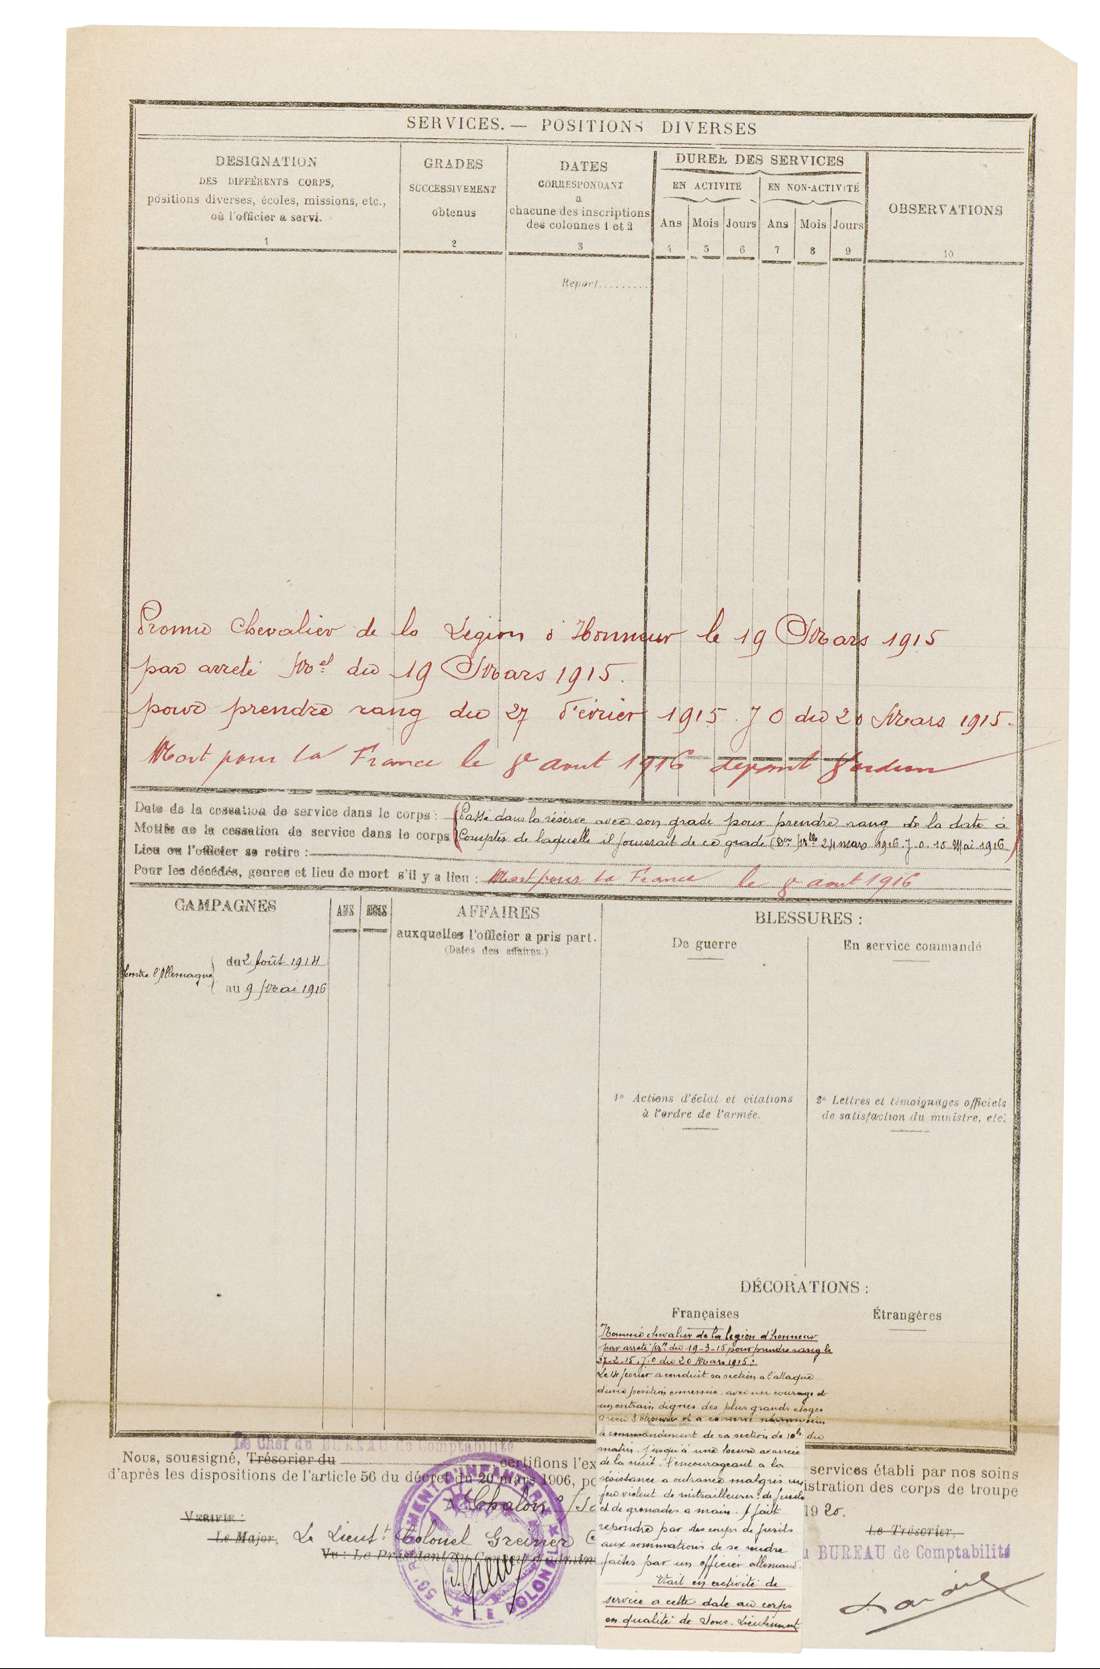 SERVICES. — POSITIONS DIVERSES
DESIGNATION
DES DIFFÉRENTS CORPS,
positions diverses, écoles, missions, etc.,
où l'officier a servi.
1
GRADES
SUCCESSIVEMENT
obtenus
2
DATES
CORRESPONDANT
a
chacune des inscriptions
des colonnes 1 et 2
3
DUREE DES SERVICES
EN ACTIVITE
EN NON-ACTIVITÉ
Ans Mois Jours Ans Mois Jours
4 5 6 7 8 9
OBSERVATIONS
10
Report.........
Promu Chevalier de la Légion d'Honneur le 19 Mars 1915
par arreté Mel du 19 Mars 1915.
pour prendre rang du 27 Février 1915. J O du 20 Mars 1915.
Mort pour la France le 8 aout 1916 devant Verdun
Date de la cessation de service dans le corps : Passé dans la réserve avec son grade pour prendre rang de la date à
Motifs de la cessation de service dans le corps Compter de laquelle il jouerait de ce grade (Don Mlle 24 mars 1916 J.O. 15 Mai 1916)
Lieu ou l'officier se retire :
Pour les décédés, genres et lieu de mort s'il y a lieu : Mort pour la France le 8 aout 1916
CAMPAGNES
ANS
MOIS
Contre l'Allemagne
du 2 Août 1914
au 9 Mai 1916
AFFAIRES
auxquelles l'officier a pris part.
(Dates des affaires.)
BLESSURES :
De guerre
En service commandé
1° Actions d'éclat et citations
à l'ordre de l'armée.
2° Lettres et témoignages officiels
de satisfaction du ministre, etc.
DÉCORATIONS :
Françaises
Étrangères
Nommé chevalier de la légion d'honneur
par arreté Mel du 19-3-15 pour prendre rang le
27-2-15. J.O du 20 Mars 1915 :
Le 14 février a conduit sa section a l'attaque
d'une position ennemie avec un courage et
un entrain dignes des plus grands éloges
le commandement de sa section de 10h du
matin. Jusqu'à une heure avancée
de la nuit. l'encourageant a la
résistance a outrance malgré un
feu violent de mitrailleuses, de fusils
et de grenades a main. A fait
repondre par des coups de fusils
aux sommations de se rendre
faites par un officier allemand.
Etait en activité de
service a cette date au corps
en qualité de Sous-Lieutenant
Le Chef de BUREAU de Comptabilité
Nous, soussigné, Trésorier du certifions l'ex services établi par nos soins
d'après les dispositions de l'article 56 du décret du 20 mars 1906, po istration des corps de troupe
A Chalon 1920.
VERIFIE :
Le Major, Le Lieutt Colonel Greiner
Le Trésorier,
Vu : Le Président du Conseil d'admin
BUREAU de Comptabilité
LE COLONEL